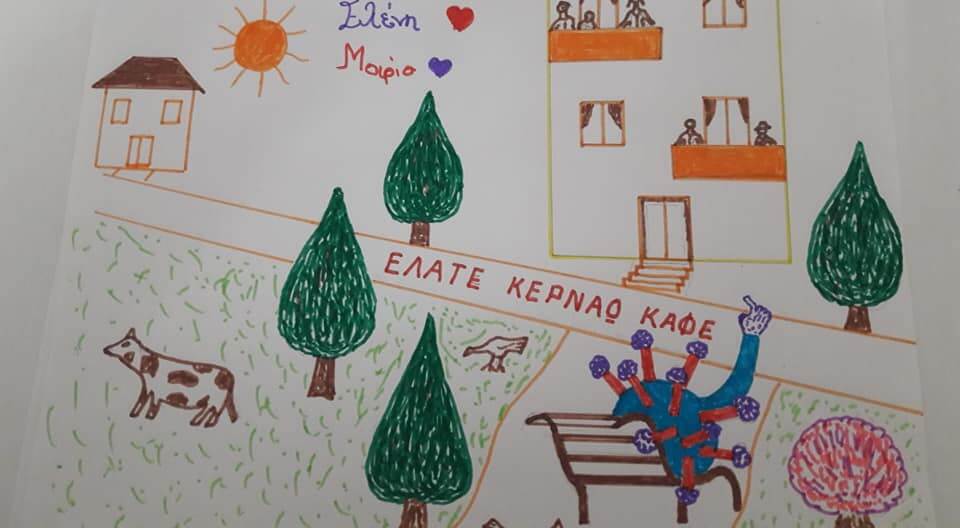 Ελένη
Μαρία
ΕΛΑΤΕ ΚΕΡΝΑΩ ΚΑΦΕ